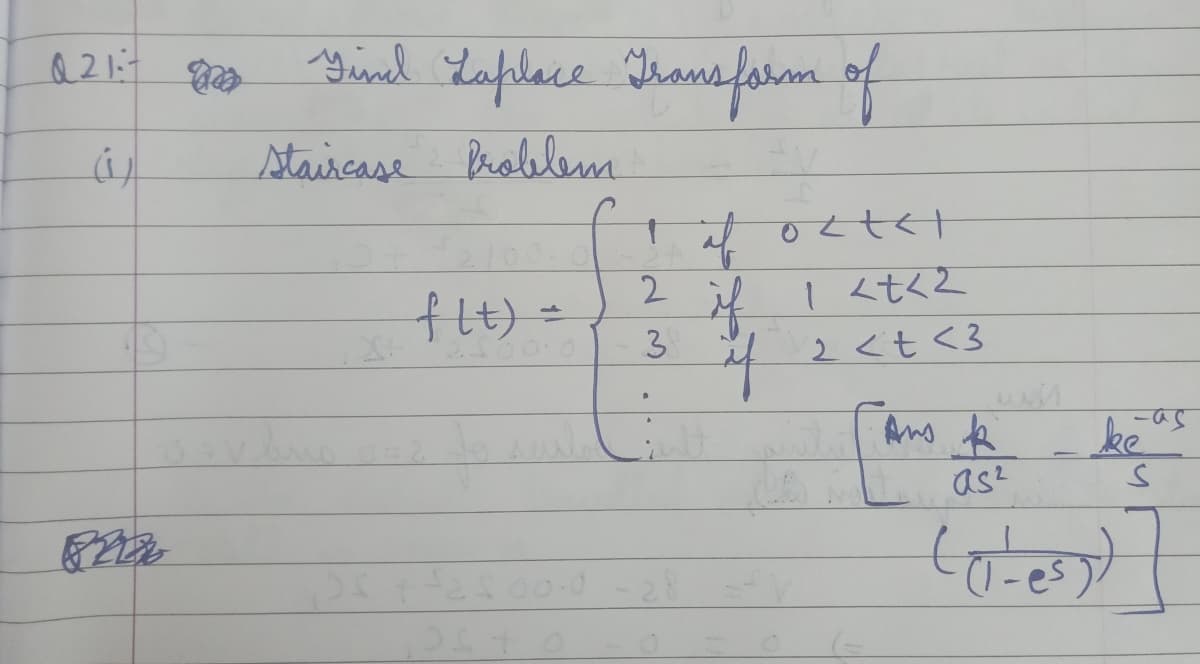 Q21:- Find Laplace Transform of
(i) Staircase Problem
f(t) = { 1 if 0 < t < 1
2 if 1 < t < 2
3 if 2 < t < 3
⋮
[Ans k/as² - ke^-as/s
(1/(1-e^s))]